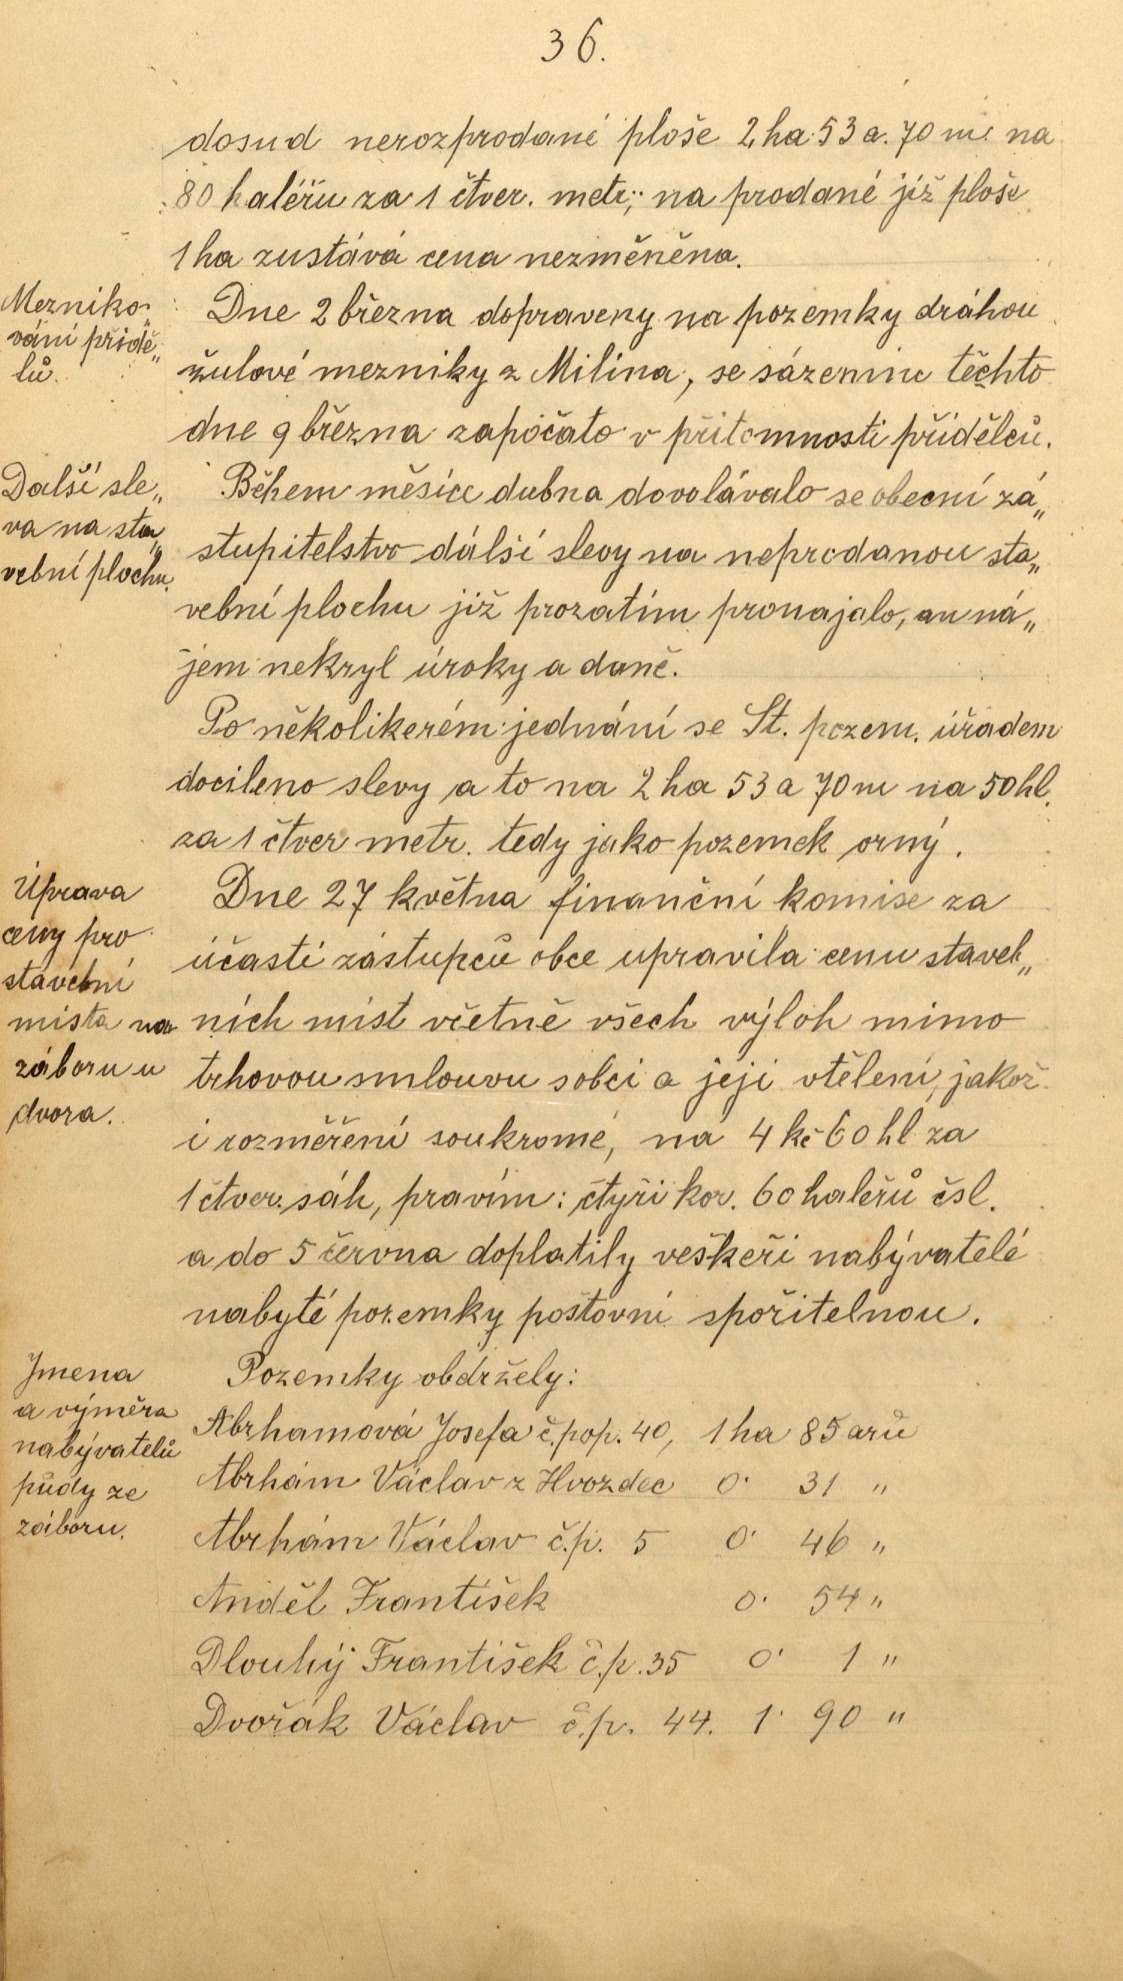 36.
dosud nerozprodané ploše 2 ha 53 a. 70 m. na
80 haléřu za 1 čtver. metr; na prodané již ploše
1 ha zustává cena nezměněna.
Mezniko-
vání přídě„
lů.
Dne 2 března dopraveny na pozemky dráhou
žulové mezniky z Milína, se sázením těchto
dne 9 března započato v přítomnosti přídělců.
Další sle„
va na sta„
vební plochu.
Během měsíce dubna dovolávalo se obecní zá„
stupitelstvo dálší slevy na neprodanou sta„
vební plochu již prozatím pronajalo, an ná„
jem nekryl úroky a daně.
Po několikerém jednání se St. pozem. úřadem
docileno slevy a to na 2 ha 53 a 70 m na 50 hl.
za 1 čtver metr. tedy jako pozemek orný.
Úprava
ceny pro
stavební
místa na
záboru u
dvora.
Dne 27 května finanční komise za
účasti zástupců obce upravila cenu staveb„
ních míst včetně všech výloh mimo
trhovou smlouvu sobci a její vtělení, jakož
i rozměření soukromé, na 4 kč 60 hl za
1 čtver. sáh, pravím: čtyři kor. 60 haléřů čsl.
a do 5 června doplatily veškeří nabývatelé
nabyté pozemky poštovní spořitelnou.
Jmena
a výměra
nabývatelů
půdy ze
záboru.
Pozemky obdržely:
Abrhamová Josefa č. pop. 40, 1 ha 85 arů
Abrhám Václav z Hvozdec 0· 31 "
Abrhám Václav č.p. 5 0· 46 "
Anděl František 0· 54 "
Dlouhý František č.p. 35 0· 1 "
Dvořák Václav č.p. 44. 1· 90 "